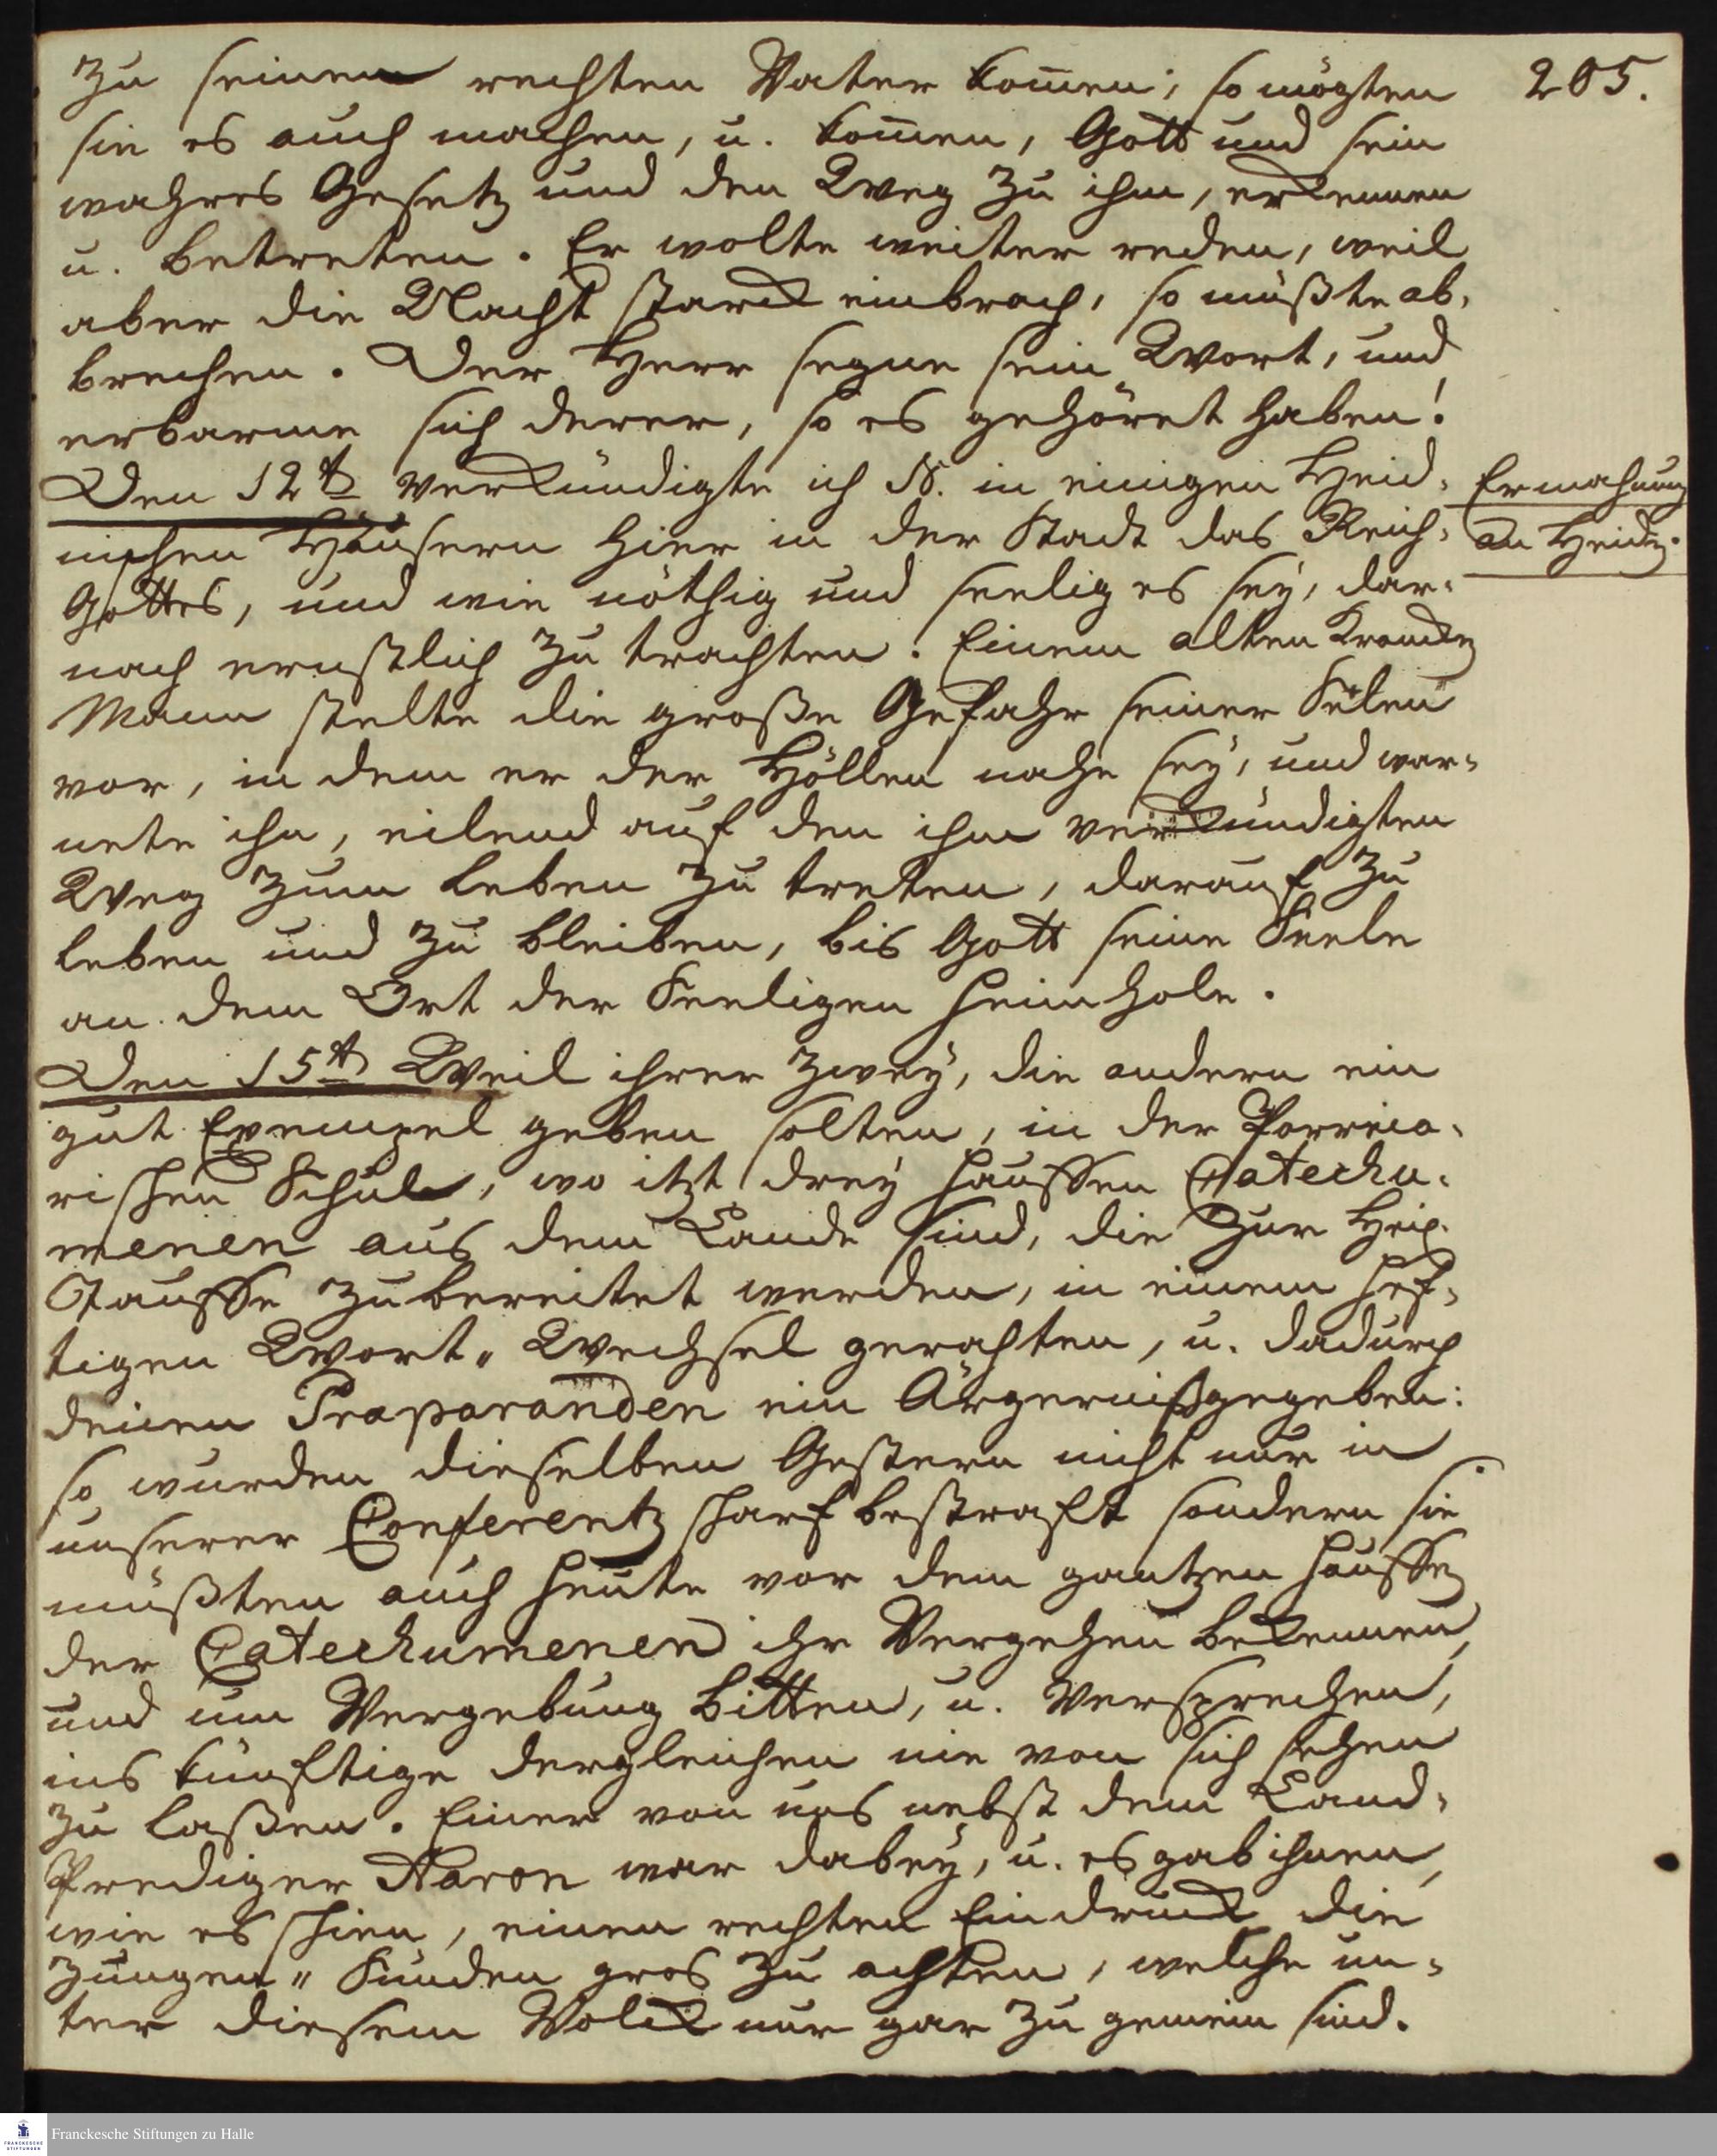 205.
zu seinem rechten Vater kom̄en; so mögten
sie es auch machen, u. kom̄en, Gott und sein
wahres Gesetz und den Weg zu ihm, erkennen
u. betreten. Er wolte weiter reden, weil
aber die Nacht starck einbrach, so müßte ab-
brechen. Der Herr segne sein Wort, und
erbarme sich derer, so es gehöret haben!
Den 12t. verkündigte ich N. in einigen Heid-
nischen Häusern hier in der Stadt das Reich-
Gottes, und wie nöthig und seelig es sey, dar-
nach ernstlich zu trachten. Einem alten krancken
Mann stelte die große Gefahr seiner Selen
vor, in dem er der Höllen nahe sey, und war-
nete ihn, eilend auf den ihm verkündigten
Weg zum Leben zu treten, darauf zu
leben und zu bleiben, bis Gott seine Seele
an dem Ort der Seeligen heimhole.
Ermahnung
an Heiden.
Den 15t. Weil ihrer zwey, die andern ein
gut Exempel geben solten, in der Porreia-
rischen Schule, wo itzt drey Hauffen Catechu-
menen aus dem Lande sind, die zur Heil.
Tauffe zubereitet werden, in einem hef-
tigen Wort-Wechsel gerathen, u. dadurch
denen Praparanden ein Ärgerniß gegeben:
so wurden dieselben Gestern nicht nur in
unserer Conferentz scharf bestraft sondern sie
müßten auch heute vor dem gantzen Hauffen
der Catechumenen ihr Vergehen bekennen,
und um Vergebung bitten, u. versprechen,
ins künftige dergleichen nie von sich sehen
zu laßen. Einer von uns nebst dem Land-
Prediger Aaron war dabey, u. es gab ihnen,
wie es schien, einen rechten Eindruck die
Zungen-Sünden gros zu achten, welche un-
ter diesem Volck nur gar zu gemein sind.
Franckesche Stiftungen zu Halle